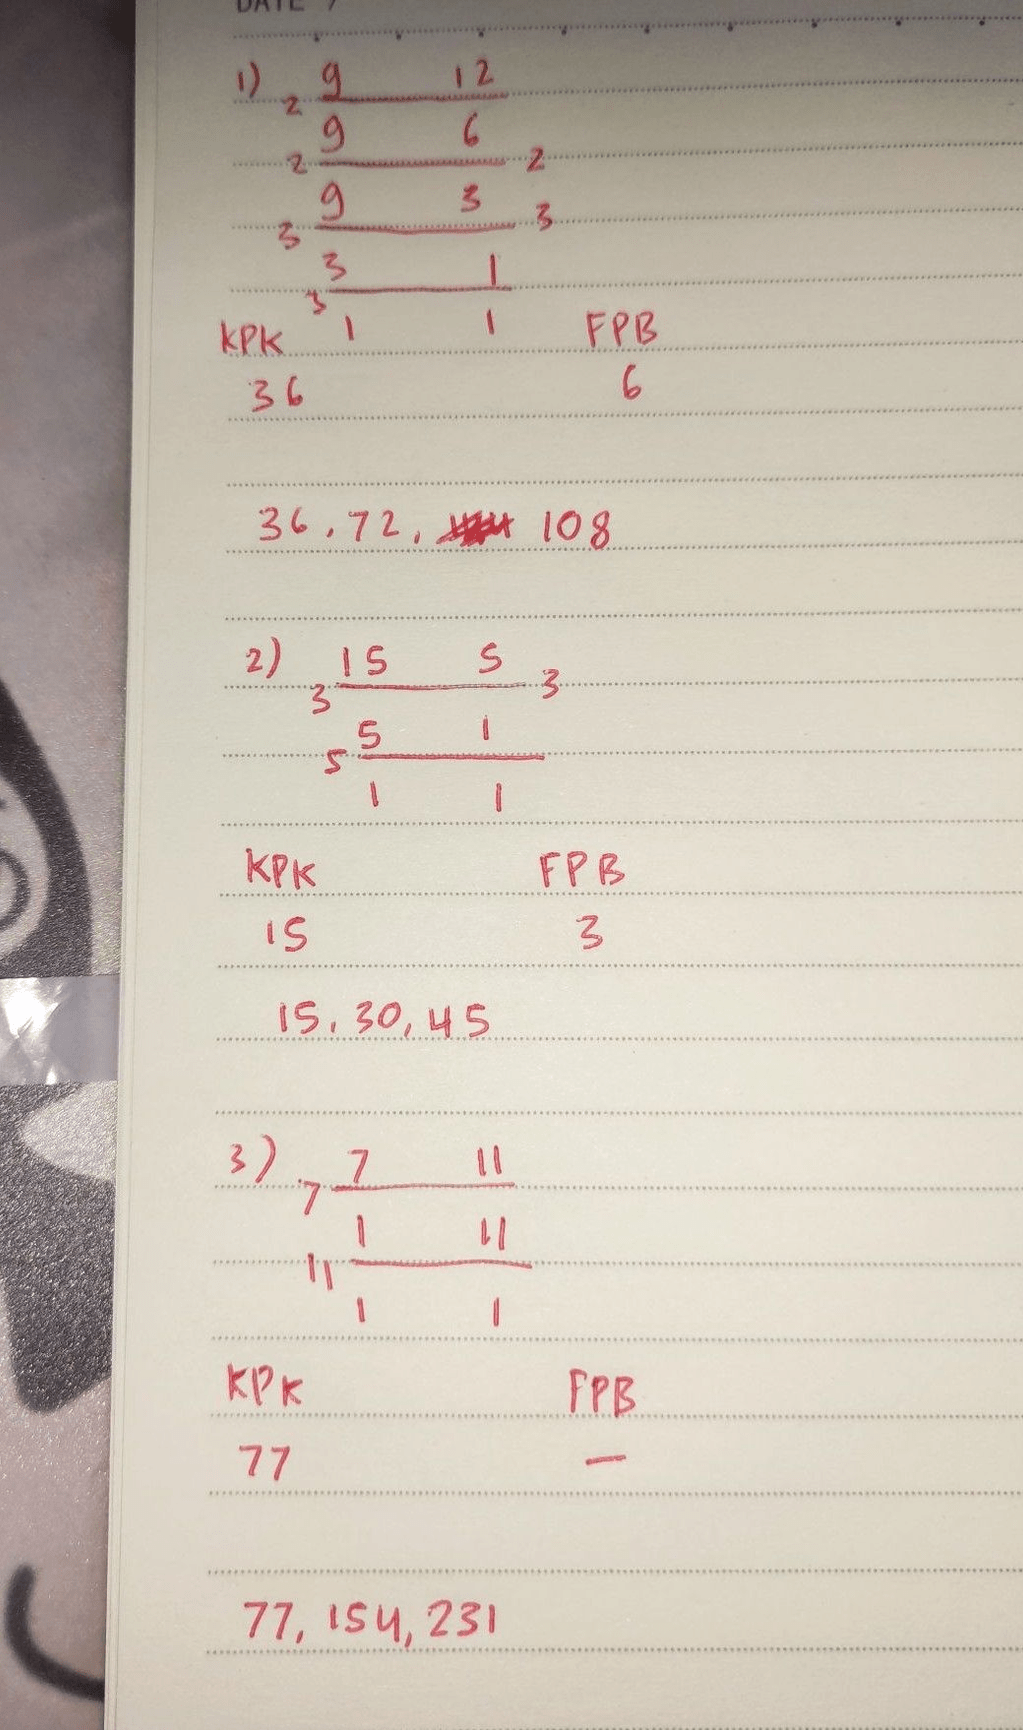 DATE /
1) 9 12
2
9 6
2 2
9 3
3 3
3 1
3
1 1
KPK FPB
36 6
36, 72, 108
2) 15 5
3 3
5 1
5
1 1
KPK FPB
15 3
15, 30, 45
3) 7 11
7
1 11
11
1 1
KPK FPB
77 –
77, 154, 231